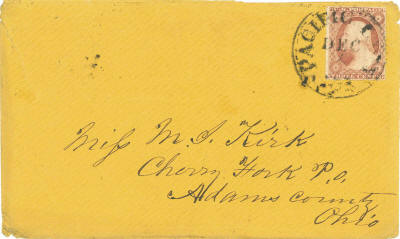 PACIFIC
DEC
Miss M. S. Kirk
Cherry Fork P.o.
Adams county
Ohio